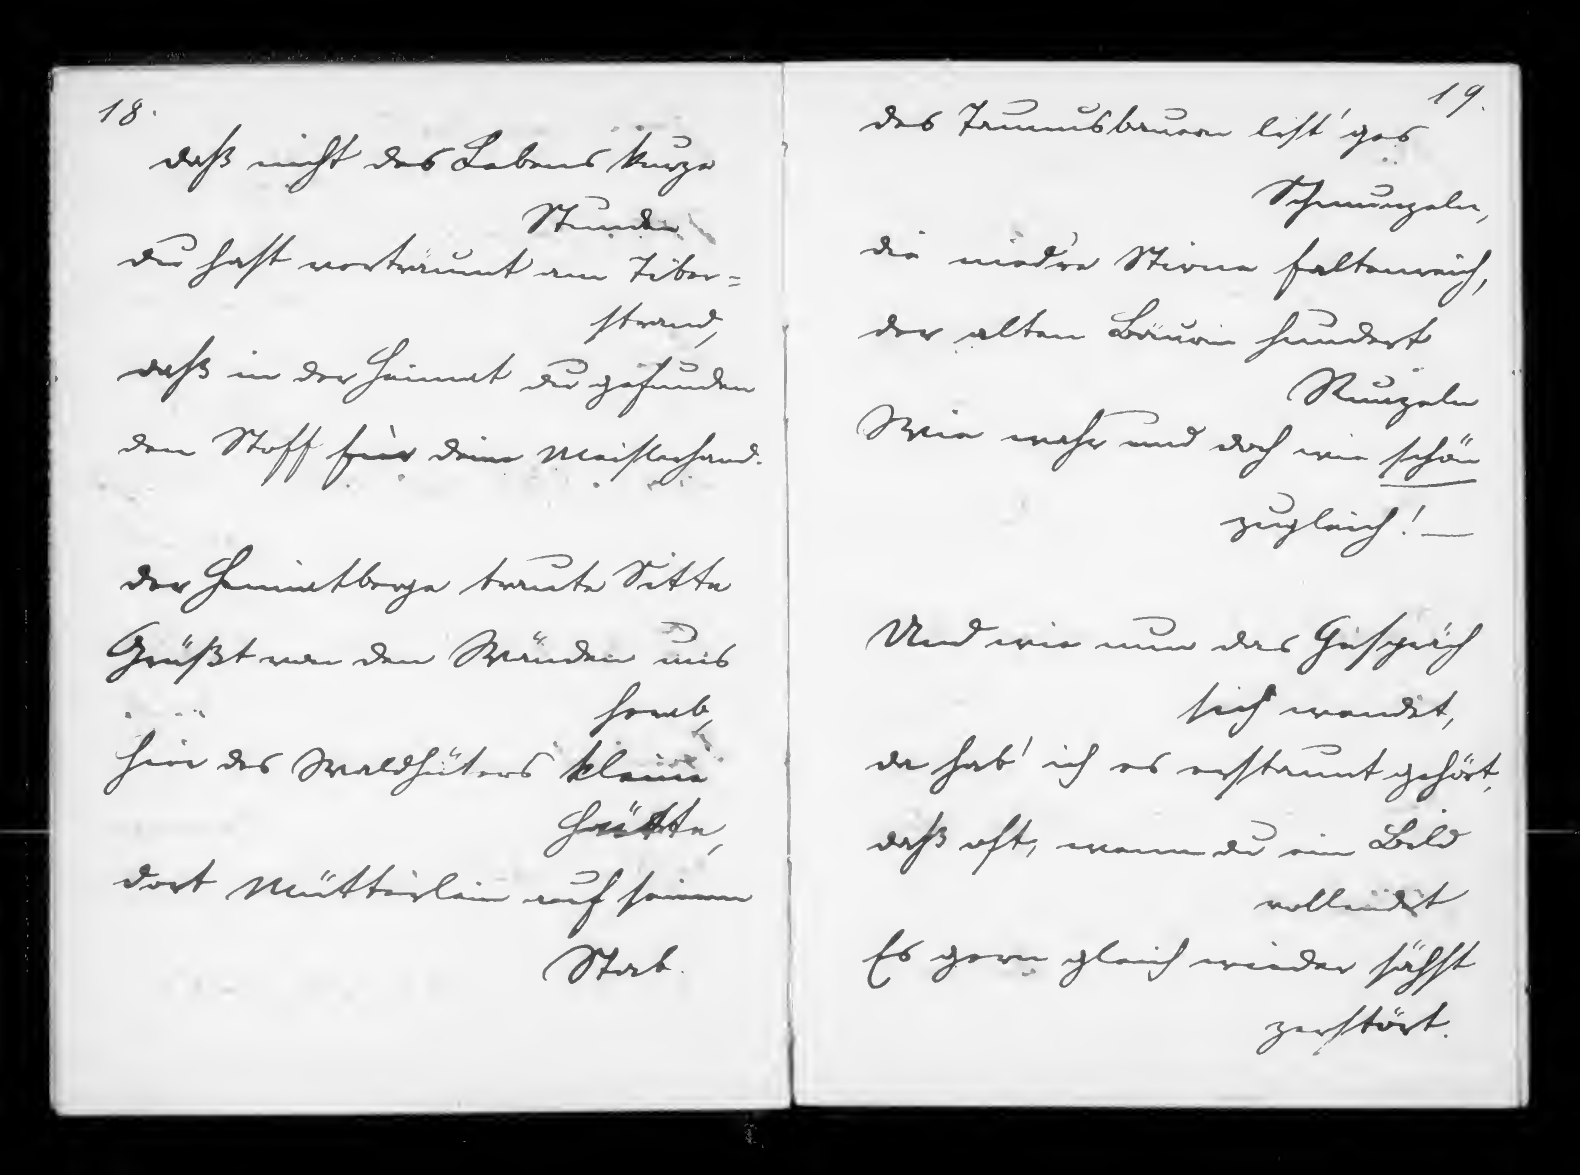 18.
daß nicht des Lebens kurze
Stunden
du hast verträumt am Tiber=
strand,
daß in der Heimat du gefunden
den Stoff für deine Meisterhand.
der Heimatberge traute Sitte
Grüßt von den Wänden uns
herab,
hier des Waldhüters kleine
Hütte,
dort Mütterlein auf seinem
Stab.
19.
des Taunusbauern list'ges
Schmunzeln,
die nied're Stirne faltenreich,
der alten Bäurin hundert
Runzeln
Wie wahr und doch wie schön
zugleich! —
Und wie nun das Gespräch
sich wendet,
da hab' ich es erstaunt gehört,
daß oft, wenn du ein Bild
vollendet
Es gern gleich wieder sähst
zerstört.